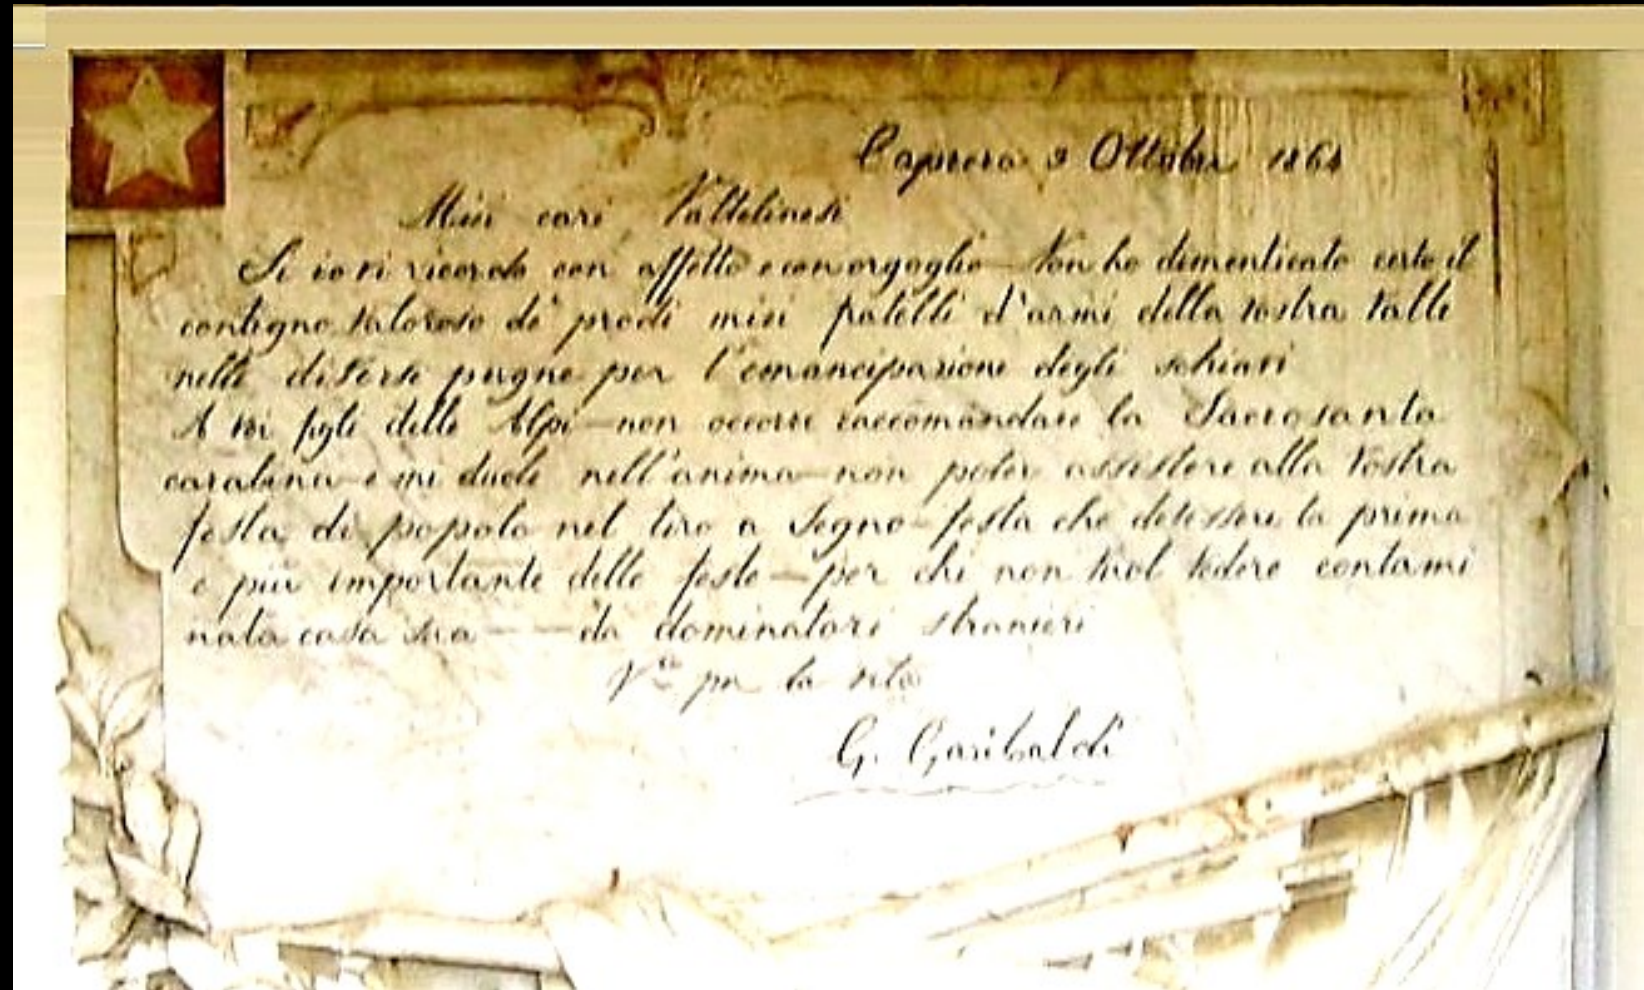 Caprera 3 Ottobre 1864
Miei cari Valtelinesi
Si io vi ricordo con affetto e con orgoglio — Non ho dimenticato certo il
contegno valoroso de' prodi miei fratelli d'armi della vostra valle
nelle diverse pugne per l'emancipazione degli schiavi
A voi figli delle Alpi — non occorre raccomandare la Sacrosanta
carabina — e mi duole nell'anima — non poter assistere alla vostra
festa di popolo nel tiro a segno — festa che dev'essere la prima
e più importante delle feste — per chi non vuol vedere contami
nata casa sua — — da dominatori stranieri
V.ro per la vita
G. Garibaldi